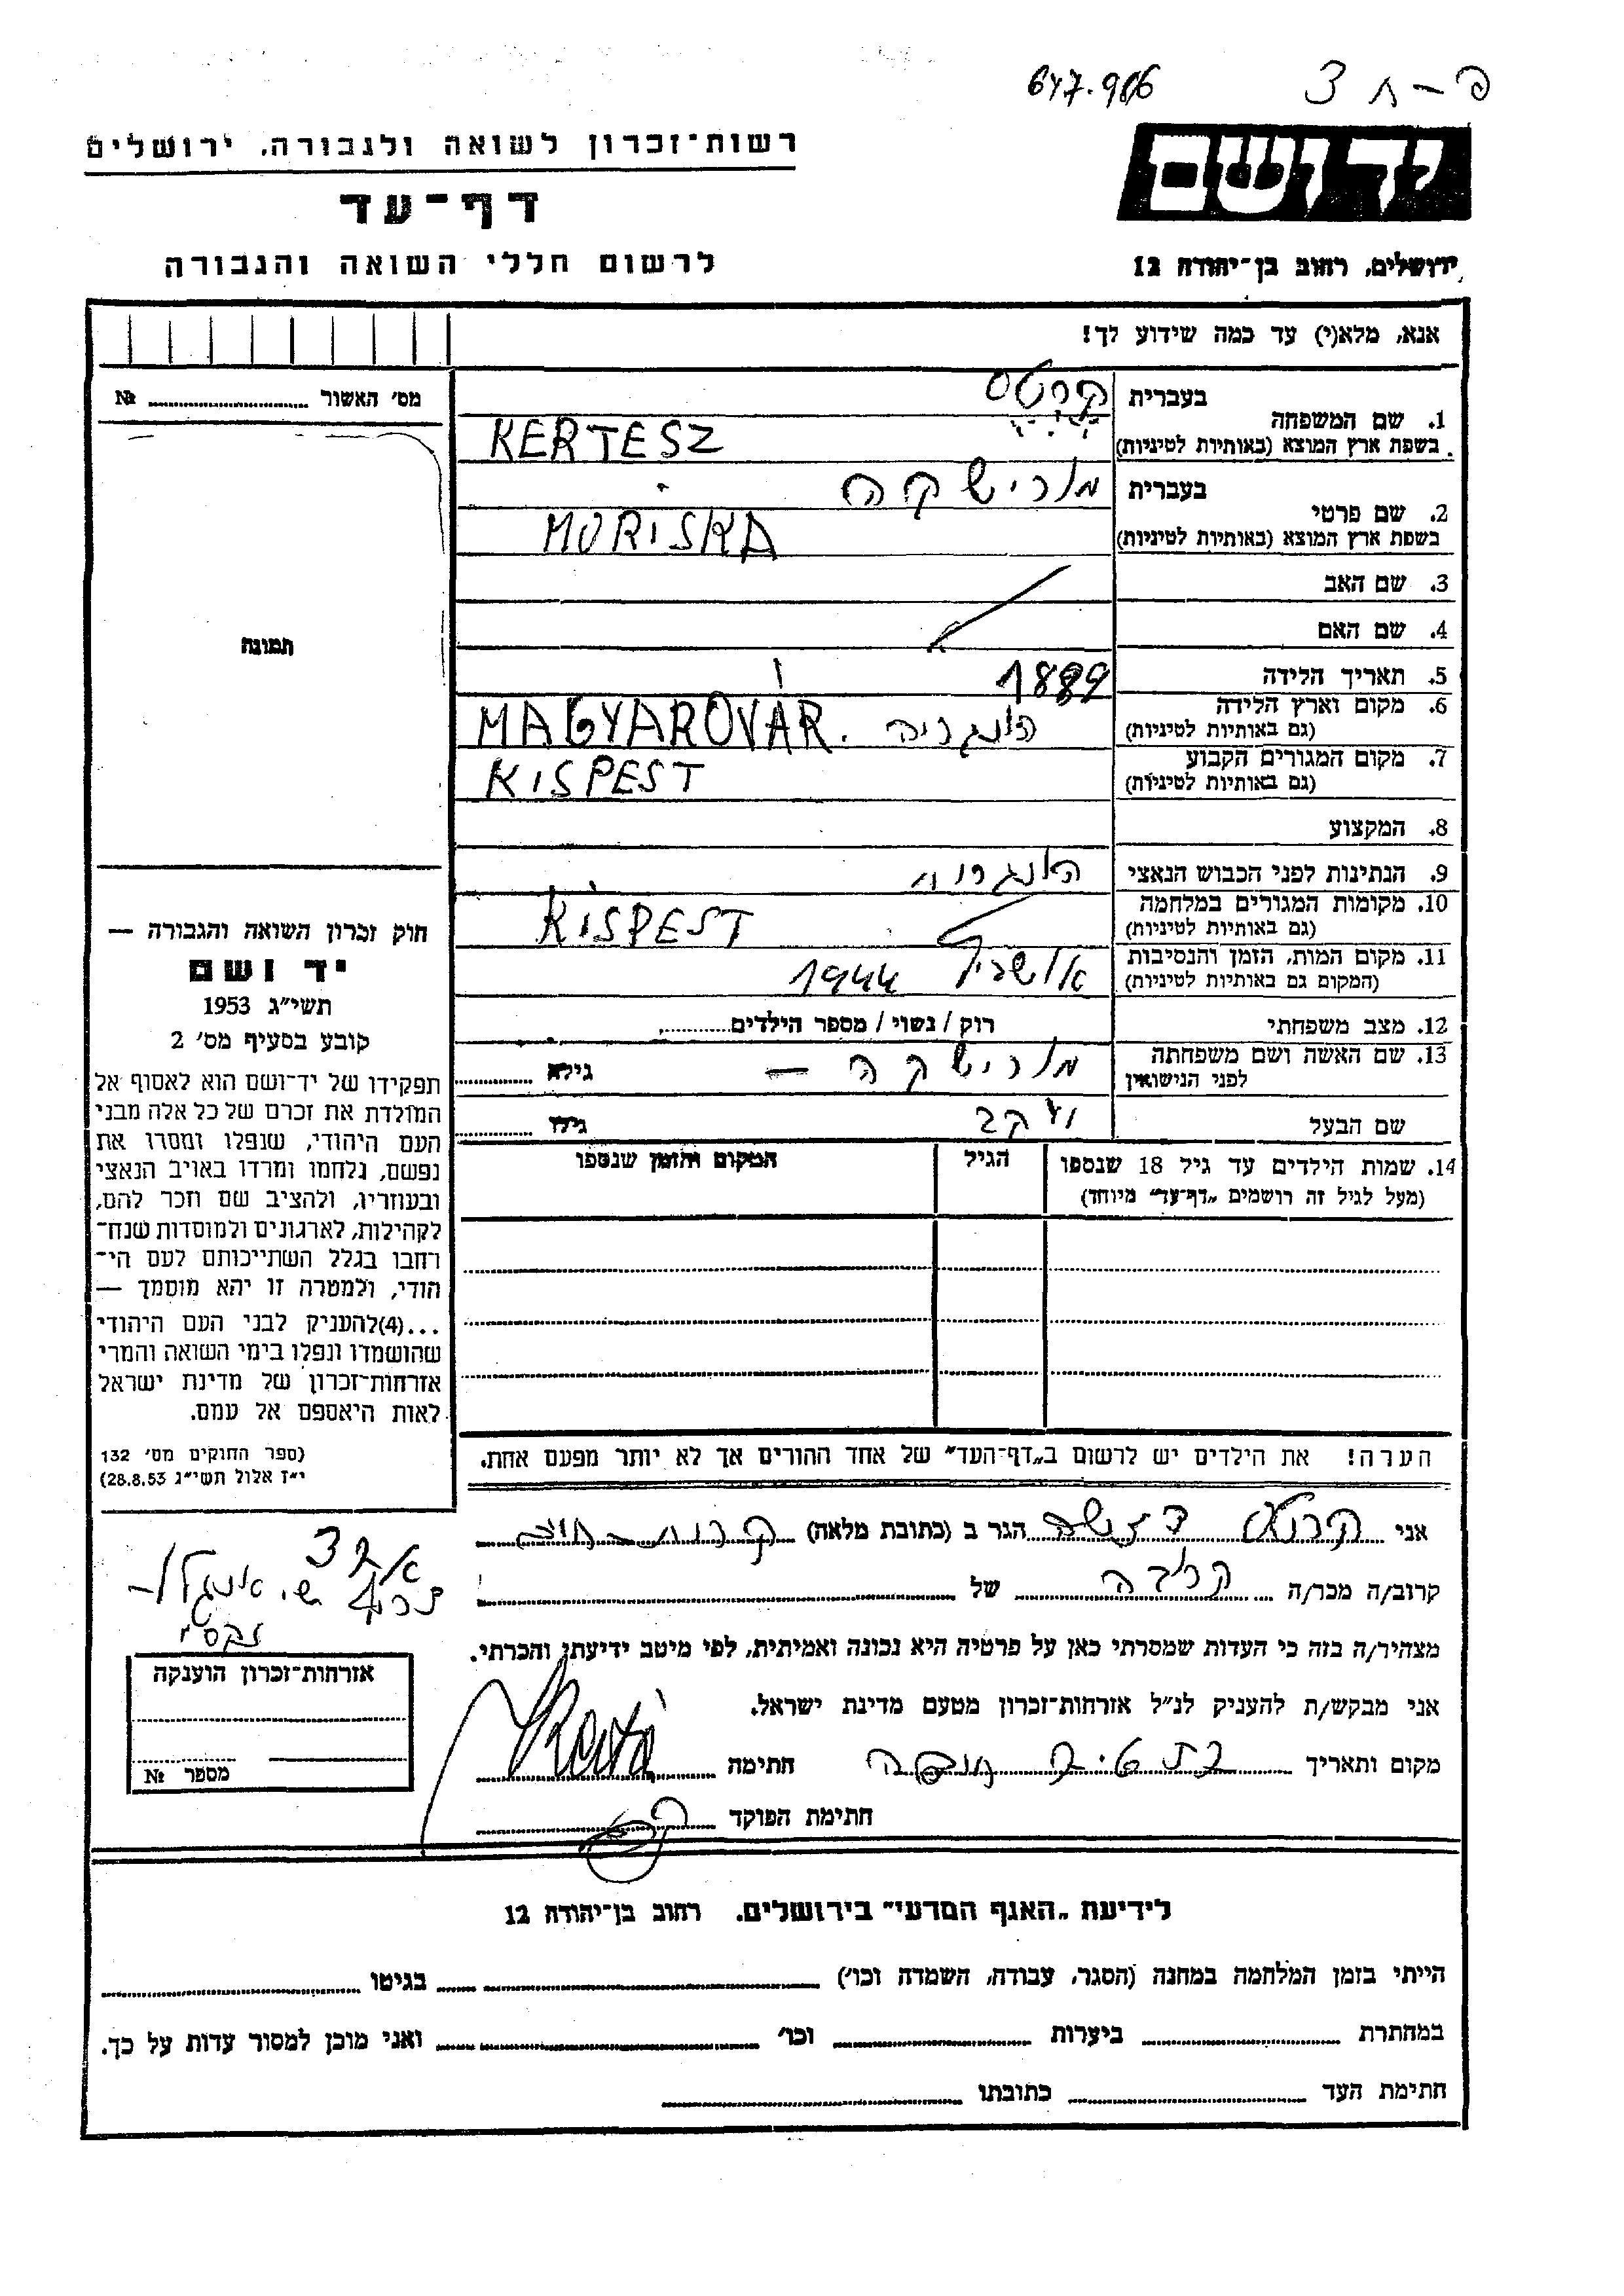 647.986
פ-ח 3
רשות־זכרון לשואה ולגבורה, ירושלים
דף־עד
לרשום חללי השואה והגבורה
יד ושם
ירושלים, רחוב בן־יהודה 12
אנא, מלא(י) עד כמה שידוע לך!
מס׳ האשור № 
1. שם המשפחה בעברית קרטס
בשפת ארץ המוצא (באותיות לטיניות) KERTESZ
2. שם פרטי בעברית מורישקה
בשפת ארץ המוצא (באותיות לטיניות) MORISKA
3. שם האב
4. שם האם
5. תאריך הלידה 1889
6. מקום וארץ הלידה (גם באותיות לטיניות) הונגריה MAGYAROVÁR.
7. מקום המגורים הקבוע (גם באותיות לטיניות) KISPEST
8. המקצוע
9. הנתינות לפני הכבוש הנאצי הונגריה
10. מקומות המגורים במלחמה (גם באותיות לטיניות) KISPEST
11. מקום המות, הזמן והנסיבות (המקום גם באותיות לטיניות) אושביץ 1944
12. מצב משפחתי רוק / נשוי / מספר הילדים
13. שם האשה ושם משפחתה לפני הנישואין מורישקה — גילא
שם הבעל יעקב גילו
14. שמות הילדים עד גיל 18 שנספו (מעל לגיל זה רושמים „דף־עד" מיוחד)
הגיל
המקום והזמן שנספו
תמונה
חוק זכרון השואה והגבורה —
יד ושם
תשי״ג 1953
קובע בסעיף מס׳ 2
תפקידו של יד־ושם הוא לאסוף אל
המולדת את זכרם של כל אלה מבני
העם היהודי, שנפלו ומסרו את
נפשם, נלחמו ומרדו באויב הנאצי
ובעוזריו, ולהציב שם וזכר להם,
לקהילות, לארגונים ולמוסדות שנח־
רחבו בגלל השתייכותם לעם הי־
הודי, ולמטרה זו יהא מוסמך —
...(4)להעניק לבני העם היהודי
שהושמדו ונפלו בימי השואה והמרי
אזרחות־זכרון של מדינת ישראל
לאות היאספם אל עמם.
(ספר החוקים מס׳ 132
י״ז אלול תשי״ג 28.8.53)
הערה! את הילדים יש לרשום ב„דף־העד" של אחד ההורים אך לא יותר מפעם אחת.
אני הגר ב (כתובת מלאה)
קרוב/ה מכר/ה קרובה של
מצהיר/ה בזה כי העדות שמסרתי כאן על פרטיה היא נכונה ואמיתית, לפי מיטב ידיעתי והכרתי.
אני מבקש/ת להעניק לנ״ל אזרחות־זכרון מטעם מדינת ישראל.
מקום ותאריך חתימה
חתימת הפוקד
אזרחות־זכרון הוענקה
מספר №
לידיעת „האגף המדעי" בירושלים, רחוב בן־יהודה 12
הייתי בזמן המלחמה במחנה (הסגר, עבודה, השמדה וכו׳) בגיטו
במחתרת ביערות וכו׳ ואני מוכן למסור עדות על כך.
חתימת העד כתובתו